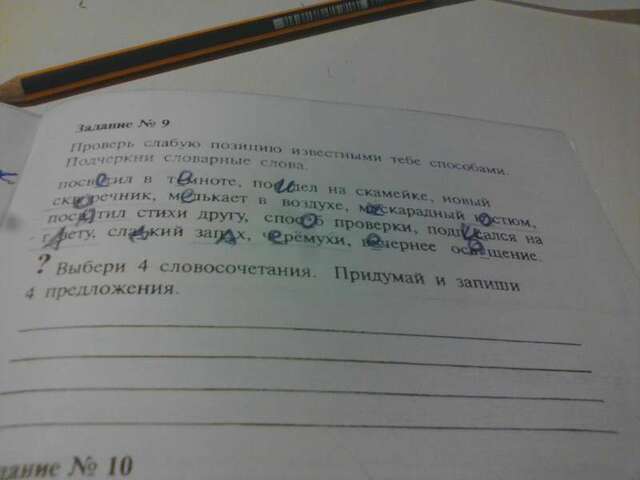 Задание № 9
Проверь слабую позицию известными тебе способами.
Подчеркни словарные слова.
посветил в темноте, посидел на скамейке, новый
скворечник, мелькает в воздухе, маскарадный костюм,
посвятил стихи другу, способ проверки, подписался на
газету, сладкий запах, черёмухи, вечернее освещение.
? Выбери 4 словосочетания. Придумай и запиши
4 предложения.
дание № 10